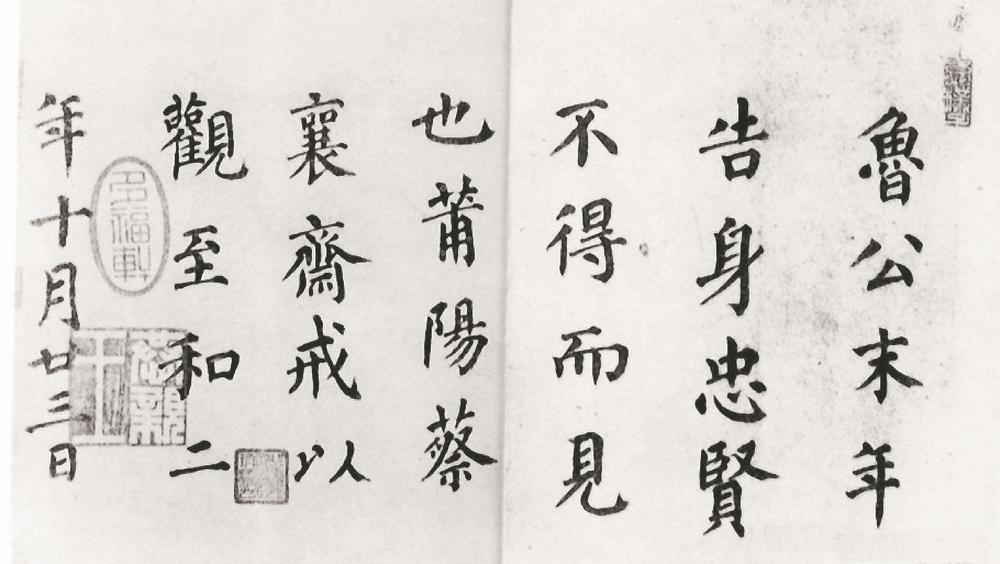 魯公末年
告身忠賢
不得而見
也莆陽蔡
襄齋戒以
觀至和二
年十月廿三日
多福軒